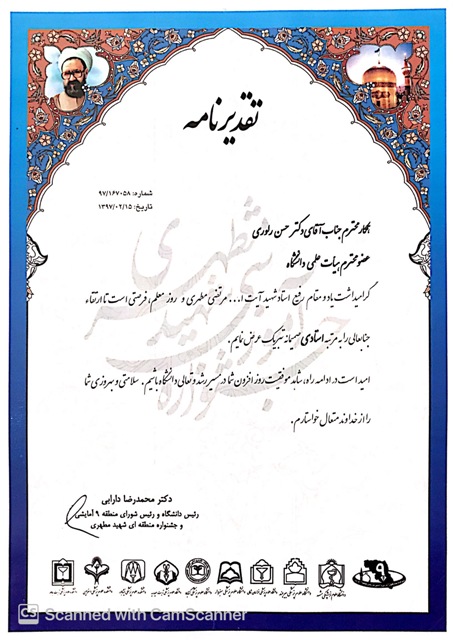 تقدیرنامه
شماره: ۹۷/۱۶۷۰۵۸
تاریخ: ۱۳۹۷/۰۲/۱۵
همکار محترم جناب آقای دکتر حسن راوری
عضو محترم هیات علمی دانشگاه
گرامیداشت یاد و مقام رفیع استاد شهید آیت ا... مرتضی مطهری و روز معلم، فرصتی است تا ارتقاء
جنابعالی را به مرتبه استادی صمیمانه تبریک عرض نمایم.
امید است در ادامه راه، شاهد موفقیت روز افزون شما در مسیر رشد و تعالی دانشگاه باشیم. سلامتی و بهروزی شما
را از خداوند متعال خواستارم.
دکتر محمدرضا دارابی
رئیس دانشگاه و رئیس شورای منطقه ۹ آمایشی
و جشنواره منطقه ای شهید مطهری
CS Scanned with CamScanner